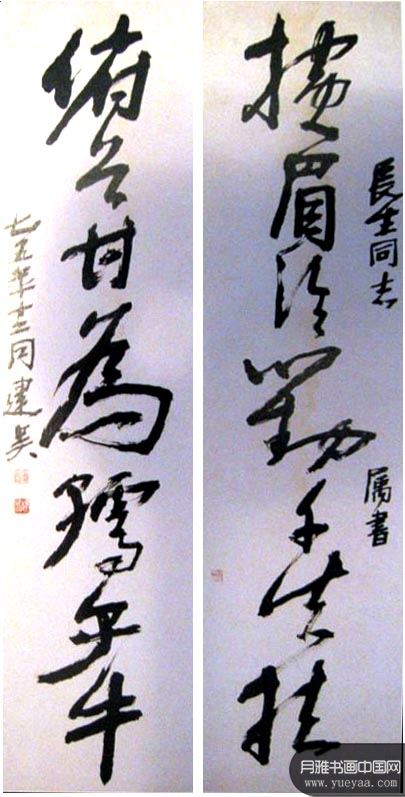 長生同志
属書
橫眉冷對千夫指
俯首甘為孺子牛
七五年十二月建吴
月雅书画中国网
www.yueyaa.com